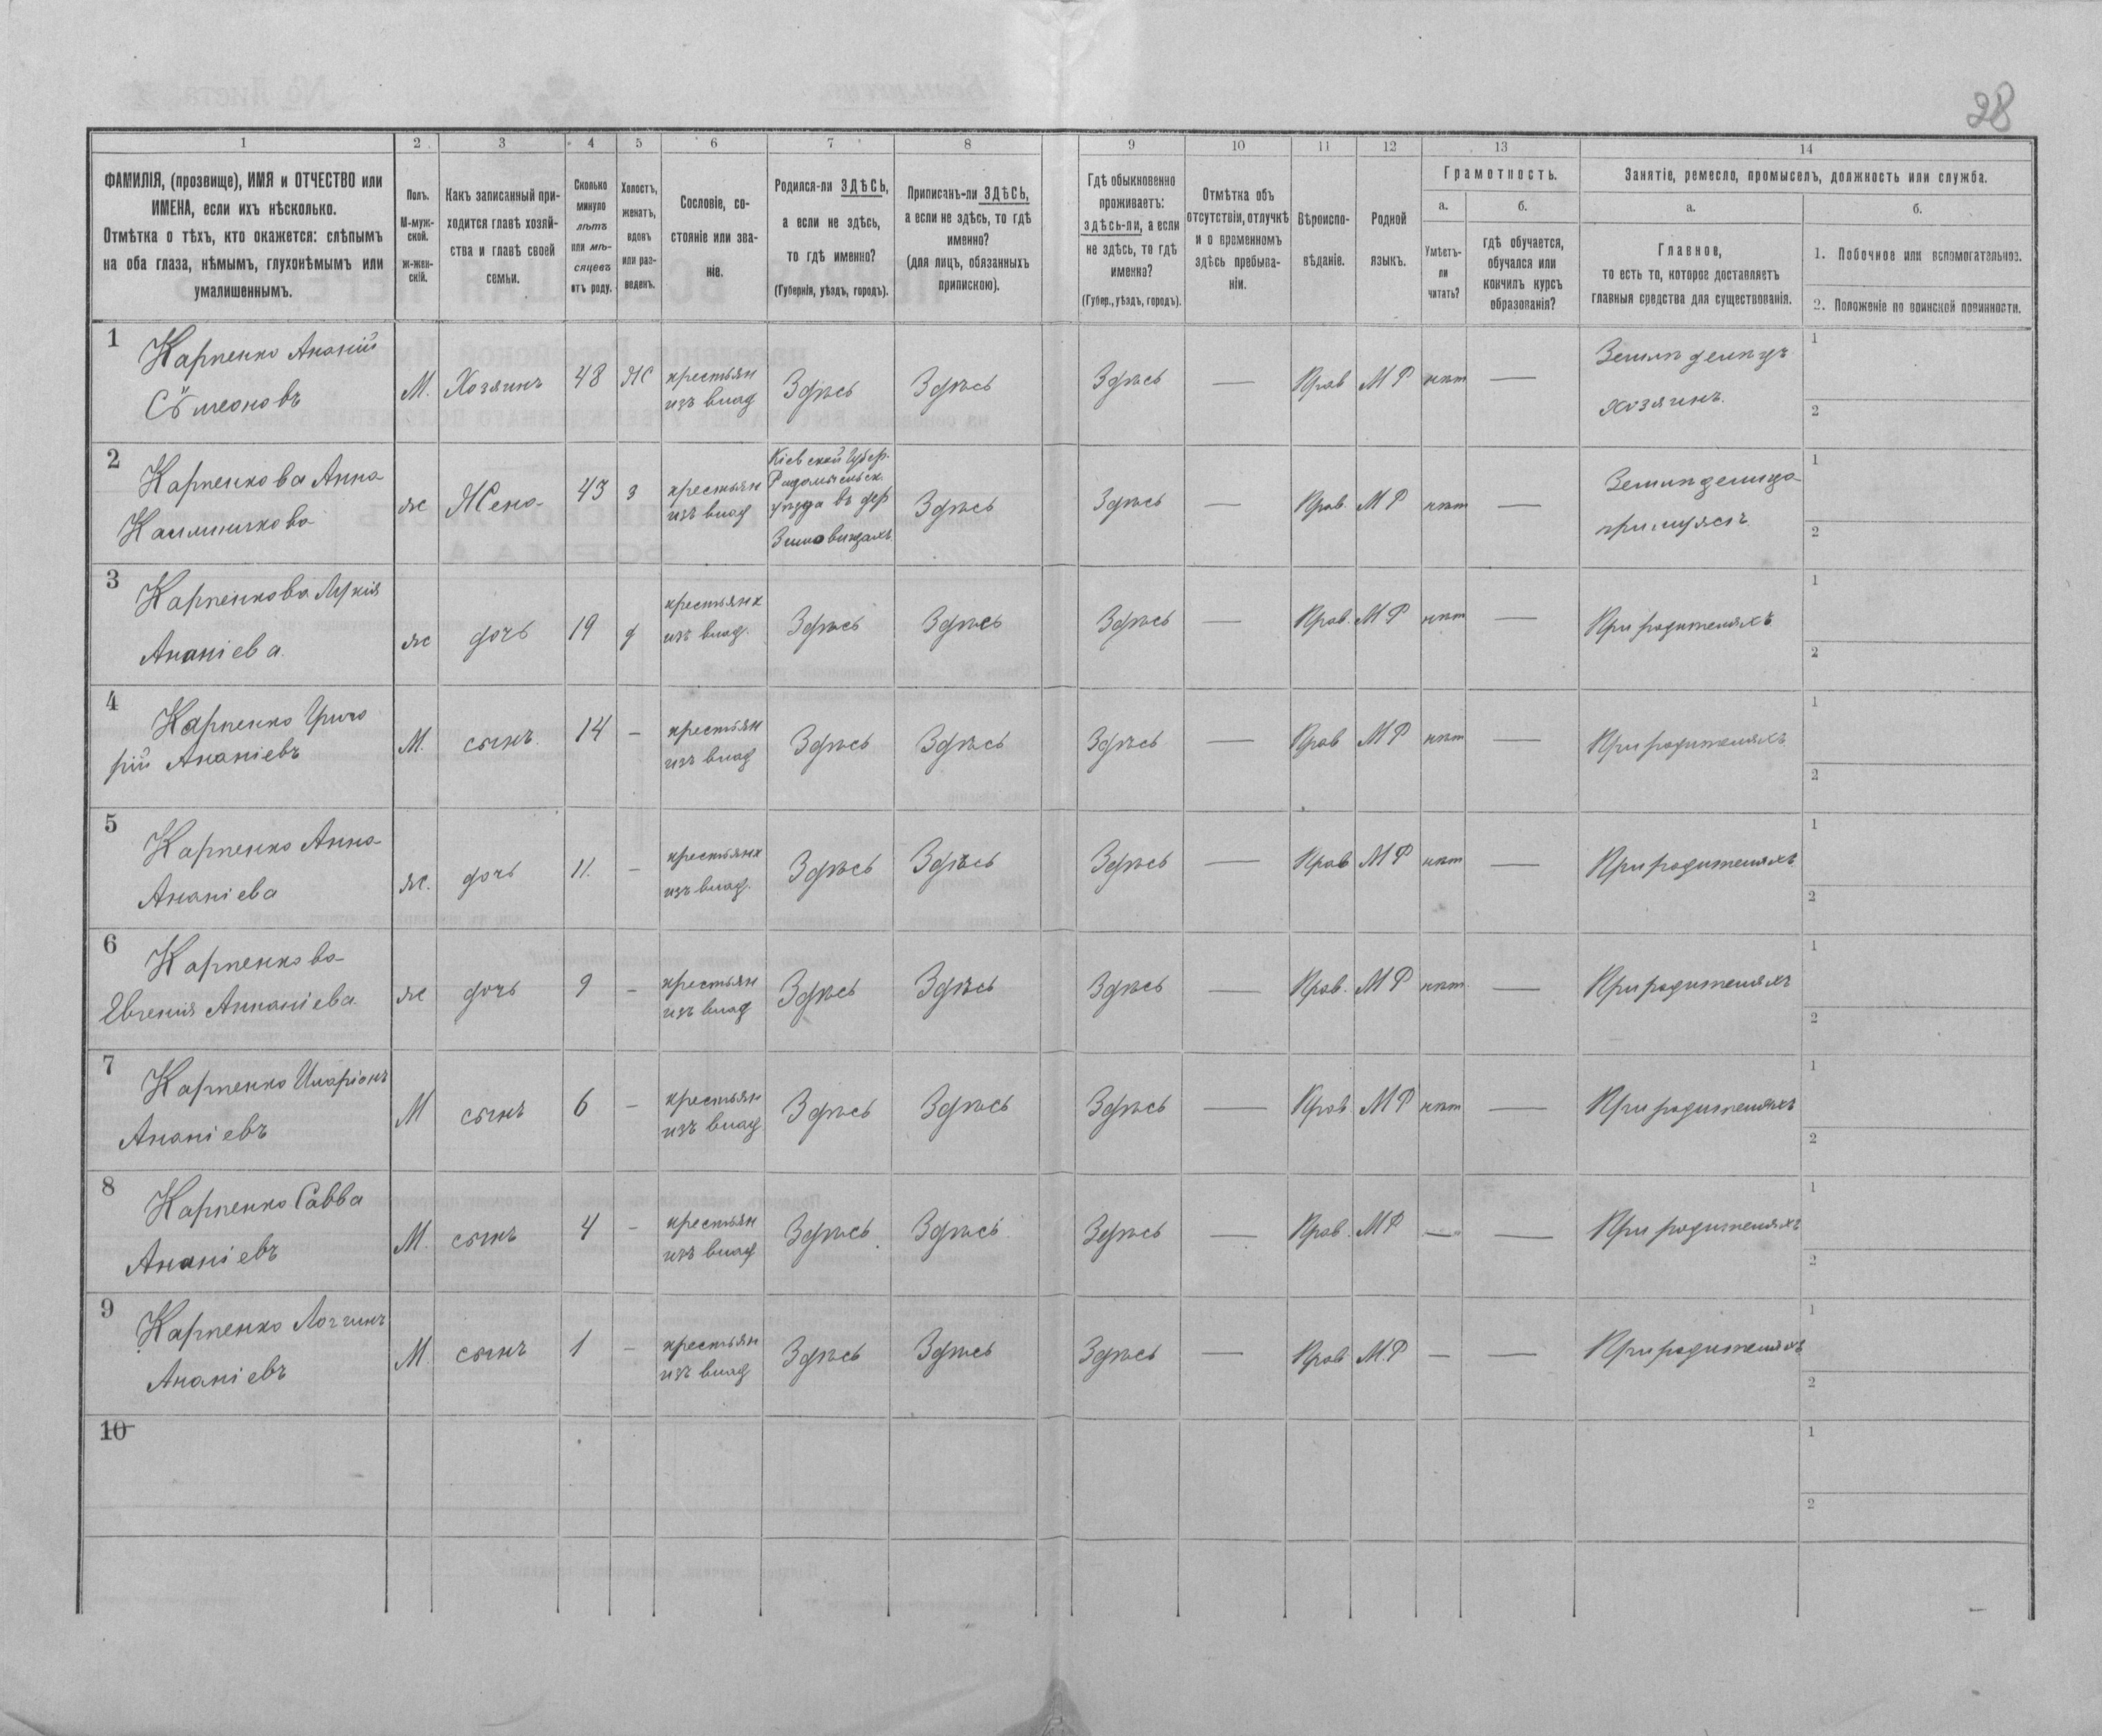 28
1 2 3 4 5 6 7 8 9 10 11 12 13 14
ФАМИЛІЯ, (прозвище), ИМЯ и ОТЧЕСТВО или
ИМЕНА, если ихъ нѣсколько.
Отмѣтка о тѣхъ, кто окажется: слѣпымъ
на оба глаза, нѣмымъ, глухонѣмымъ или
умалишеннымъ.
Полъ.
М-муж-
ской.
ж-жен-
скій.
Какъ записанный при-
ходится главѣ хозяй-
ства и главѣ своей
семьи.
Сколько
минуло
лѣтъ
или мѣ-
сяцевъ
отъ роду.
Холостъ,
женатъ,
вдовъ
или раз-
веденъ.
Сословіе, со-
стояніе или зва-
ніе.
Родился-ли ЗДѢСЬ,
а если не здѣсь,
то гдѣ именно?
(Губернія, уѣздъ, городъ).
Приписанъ-ли ЗДѢСЬ,
а если не здѣсь, то гдѣ
именно?
(для лицъ, обязанныхъ
припискою).
Гдѣ обыкновенно
проживаетъ:
здѣсь-ли, а если
не здѣсь, то гдѣ
именно?
(Губер., уѣздъ, городъ).
Отмѣтка объ
отсутствіи, отлучкѣ
и о временномъ
здѣсь пребыва-
ніи.
Вѣроиспо-
вѣданіе.
Родной
языкъ.
Грамотность.
а.
Умѣетъ-
ли
читать?
б.
гдѣ обучается,
обучался или
кончилъ курсъ
образованія?
Занятіе, ремесло, промыселъ, должность или служба.
а.
Главное,
то есть то, которое доставляетъ
главныя средства для существованія.
б.
1. Побочное или вспомогательное.
2. Положеніе по воинской повинности.
1 Карпенко Ананій
Сѵмеоновъ
М. Хозяинъ 48 Ж крестьян
изъ влад Здѣсь Здѣсь Здѣсь — Прав М Р нѣт — Земледелецъ
хозяинъ.
1
2
2 Карпенкова Анна
ж Жена 43 з крестьян
изъ влад
Кіевской Губер.
уѣзда въ дер
Здѣсь Здѣсь — Прав. М Р нѣт —
при мужѣ
1
2
3 Карпенкова Лукія
Ананіева.
ж дочь 19 д крестьянк
изъ влад. Здѣсь Здѣсь Здѣсь — Прав. М Р нѣт — При родителяхъ
1
2
4 Карпенко Григо
рій Ананіевъ
М. сынъ. 14 — крестьян
изъ влад Здѣсь Здѣсь Здѣсь — Прав М Р нѣт — При родителяхъ
1
2
5 Карпенко Анна
Ананіева
ж. дочь 11. — крестьянк
изъ влад. Здѣсь Здѣсь Здѣсь — Прав М Р нѣт — При родителяхъ
1
2
6 Карпенкова
Евгенія Аннаніева
ж дочь 9 — крестьян
изъ влад Здѣсь Здѣсь Здѣсь — Прав. М Р нѣт — При родителяхъ
1
2
7 Карпенко Иларіонъ
Ананіевъ
М сынъ 6 — крестьян
изъ влад Здѣсь Здѣсь Здѣсь — Прав М Р нѣт — При родителяхъ
1
2
8 Карпенко Савва
Ананіевъ
М. сынъ 4 — крестьян
изъ влад Здѣсь Здѣсь Здѣсь — Прав. М Р — — При родителяхъ
1
2
9 Карпенко Логгинъ
Ананіевъ
М сынъ 1 — крестьян
изъ влад Здѣсь Здѣсь Здѣсь — Прав. М.Р — — При родителяхъ
1
2
10
1
2